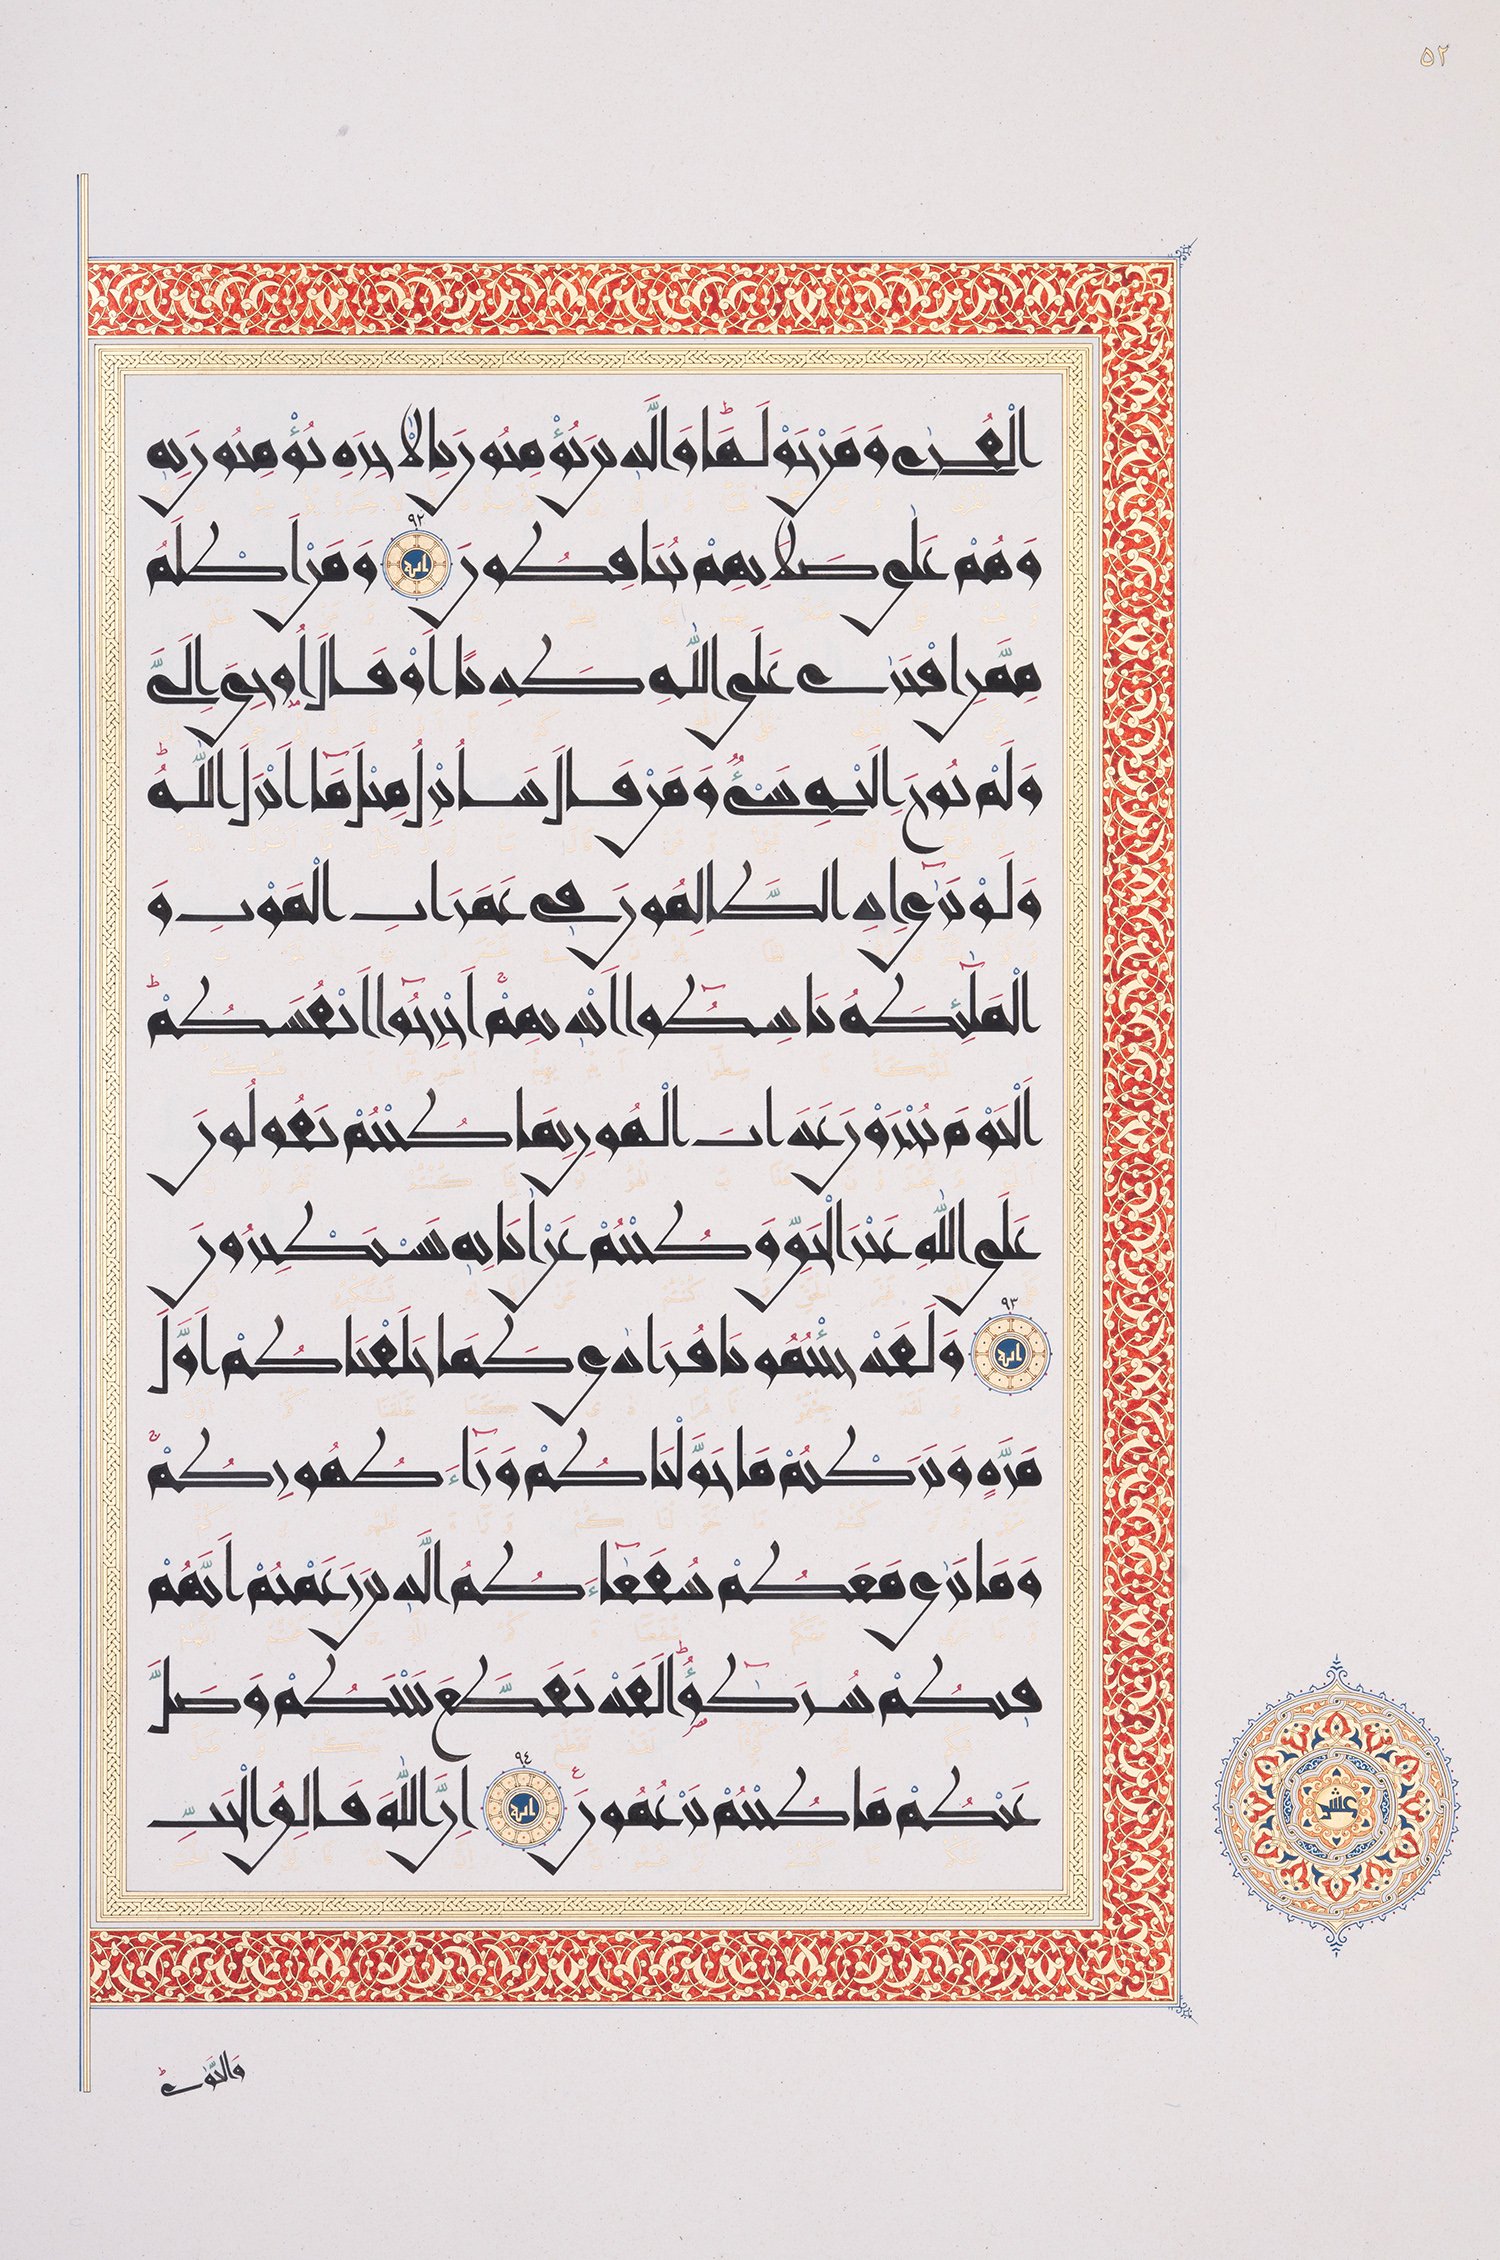 ٥٢
الْقُرٰى وَمَنْ حَوْلَهَاۜ وَالَّذ۪ينَ يُؤْمِنُونَ بِالْاٰخِرَةِ يُؤْمِنُونَ بِه۪
وَهُمْ عَلٰى صَلَاتِهِمْ يُحَافِظُونَ ٩٢ اية وَمَنْ اَظْلَمُ
مِمَّنِ افْتَرٰى عَلَى اللّٰهِ كَذِبًا اَوْ قَالَ اُوحِيَ اِلَيَّ
وَلَمْ يُوحَ اِلَيْهِ شَيْءٌ وَمَنْ قَالَ سَاُنْزِلُ مِثْلَ مَٓا اَنْزَلَ اللّٰهُۜ
وَلَوْ تَرٰٓى اِذِ الظَّالِمُونَ ف۪ي غَمَرَاتِ الْمَوْتِ وَ
الْمَلٰٓئِكَةُ بَاسِطُٓوا اَيْد۪يهِمْۚ اَخْرِجُٓوا اَنْفُسَكُمْۜ
اَلْيَوْمَ تُجْزَوْنَ عَذَابَ الْهُونِ بِمَا كُنْتُمْ تَقُولُونَ
عَلَى اللّٰهِ غَيْرَ الْحَقِّ وَكُنْتُمْ عَنْ اٰيَاتِه۪ تَسْتَكْبِرُونَ
٩٣ اية وَلَقَدْ جِئْتُمُونَا فُرَادٰى كَمَا خَلَقْنَاكُمْ اَوَّلَ
مَرَّةٍ وَتَرَكْتُمْ مَا خَوَّلْنَاكُمْ وَرَٓاءَ ظُهُورِكُمْۚ
وَمَا نَرٰى مَعَكُمْ شُفَعَٓاءَكُمُ الَّذ۪ينَ زَعَمْتُمْ اَنَّهُمْ
ف۪يكُمْ شُرَكٰٓؤُ۬اۜ لَقَدْ تَقَطَّعَ بَيْنَكُمْ وَضَلَّ
عَنْكُمْ مَا كُنْتُمْ تَزْعُمُونَ۟ ٩٤ اية اِنَّ اللّٰهَ فَالِقُ الْحَبِّ
عشر
وَالنَّوٰىۜ